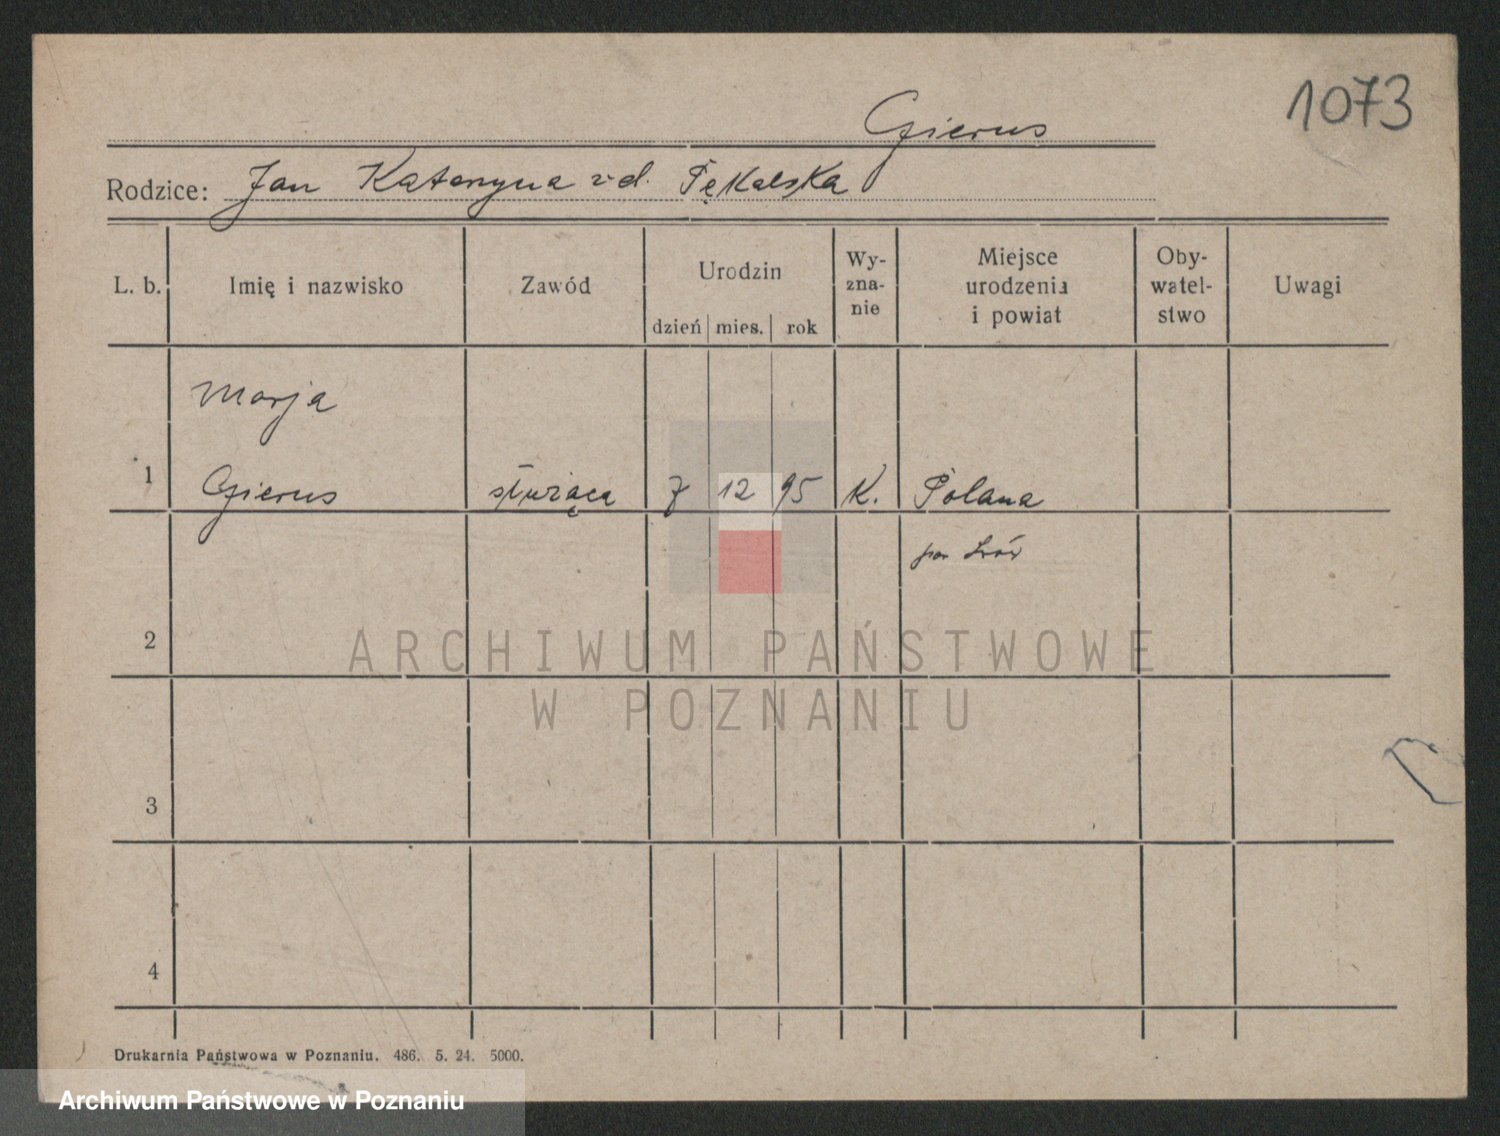 1073
Gierus
Rodzice: Jan Katarzyna z d. Pękalska
L. b. Imię i nazwisko Zawód Urodzin dzień mies. rok Wy-zna-nie Miejsce urodzenia i powiat Oby-watel-stwo Uwagi
Marja
1 Gierus służąca 7 12 95 K. Polana
pow Lwów
2
ARCHIWUM PAŃSTWOWE
W POZNANIU
3
4
Drukarnia Państwowa w Poznaniu. 486. 5. 24. 5000.
Archiwum Państwowe w Poznaniu